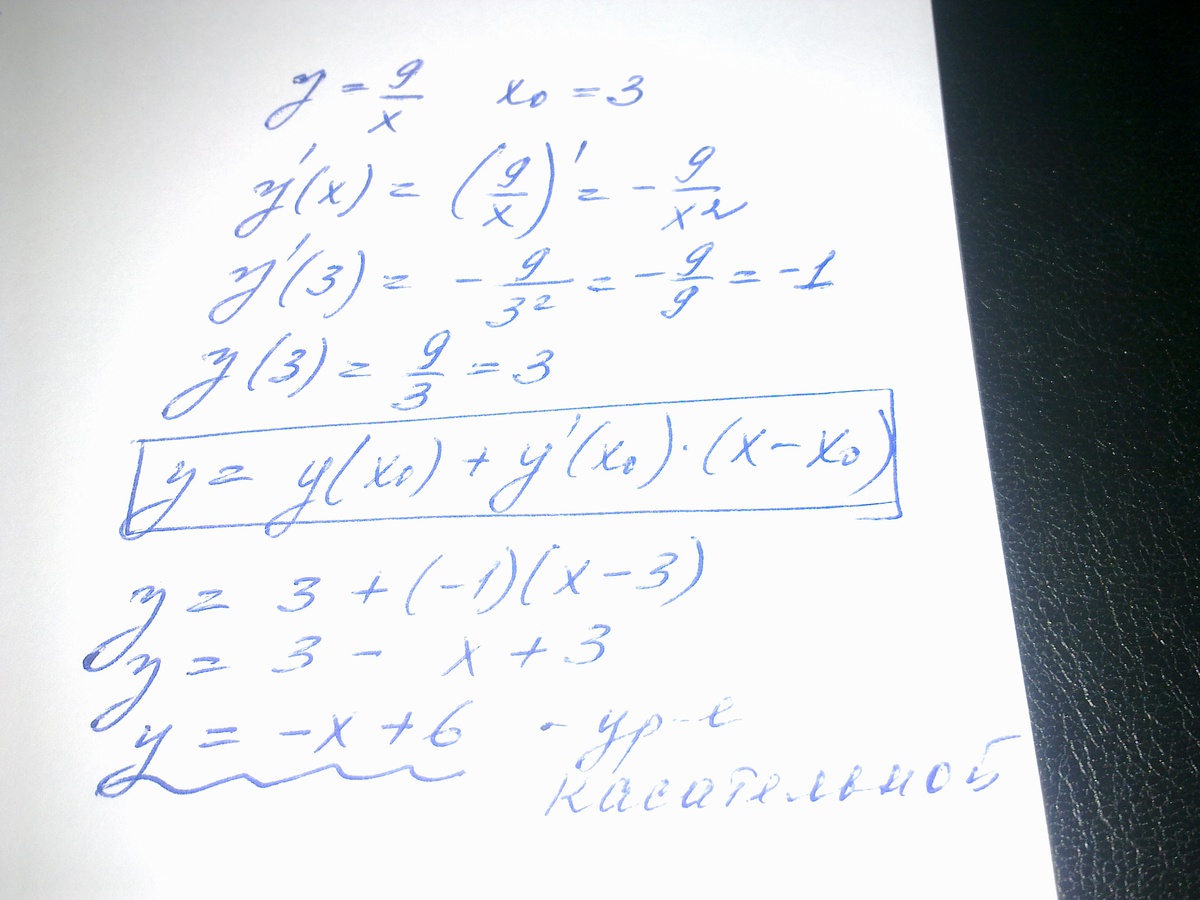 y = 9/x x₀ = 3
y'(x) = (9/x)' = - 9/x²
y'(3) = - 9/3² = - 9/9 = -1
y(3) = 9/3 = 3
y = y(x₀) + y'(x₀)·(x - x₀)
y = 3 + (-1)(x - 3)
y = 3 - x + 3
y = -x + 6 - ур-е
касательной